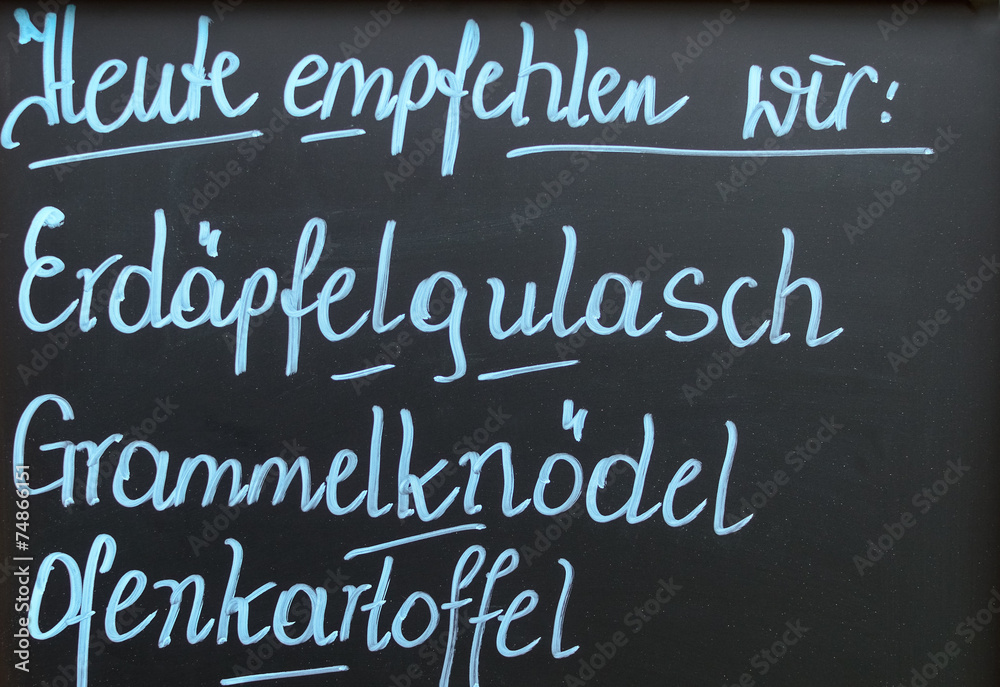 Heute empfehlen wir:
Erdäpfelgulasch
Grammelknödel
Ofenkartoffel
Adobe Stock | 74866151